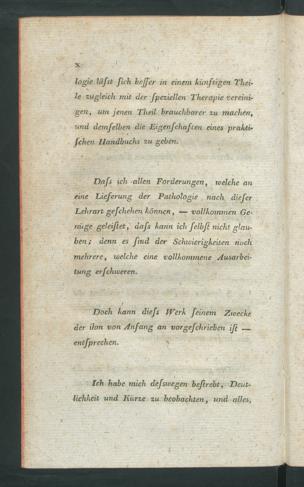 x
logie läſst ſich beſſer in einem künftigen Thei-
le zugleich mit der ſpeziellen Therapie vereini-
gen, um jenen Theil brauchbarer zu machen,
und demſelben die Eigenſchaften eines prakti-
ſchen Handbuchs zu geben.
Daſs ich allen Forderungen, welche an
eine Lieferung der Pathologie nach dieſer
Lehrart geſchehen können, — vollkommen Ge-
nüge geleiſtet, daſs kann ich ſelbſt nicht glau-
ben; denn es ſind der Schwierigkeiten noch
mehrere, welche eine vollkommene Ausarbei-
tung erſchweren.
Doch kann dieſs Werk ſeinem Zwecke
der ihm von Anfang an vorgeſchrieben iſt —
entſprechen.
Ich habe mich deſswegen beſtrebt, Deut-
lichkeit und Kürze zu beobachten, und alles,